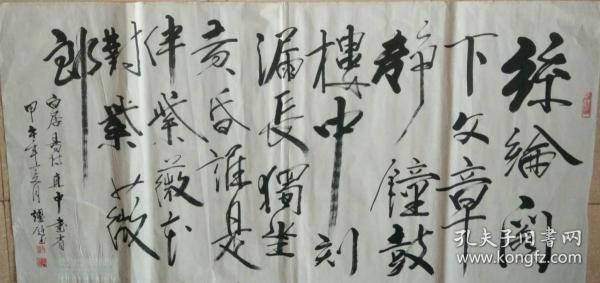 絲綸閣
下文章
靜鐘鼓
樓中刻
漏長獨坐
黄昏誰是
伴紫薇花
對紫薇
郎
白居易诗直中書省
甲午年
孔夫子旧书网
www.kongfz.com